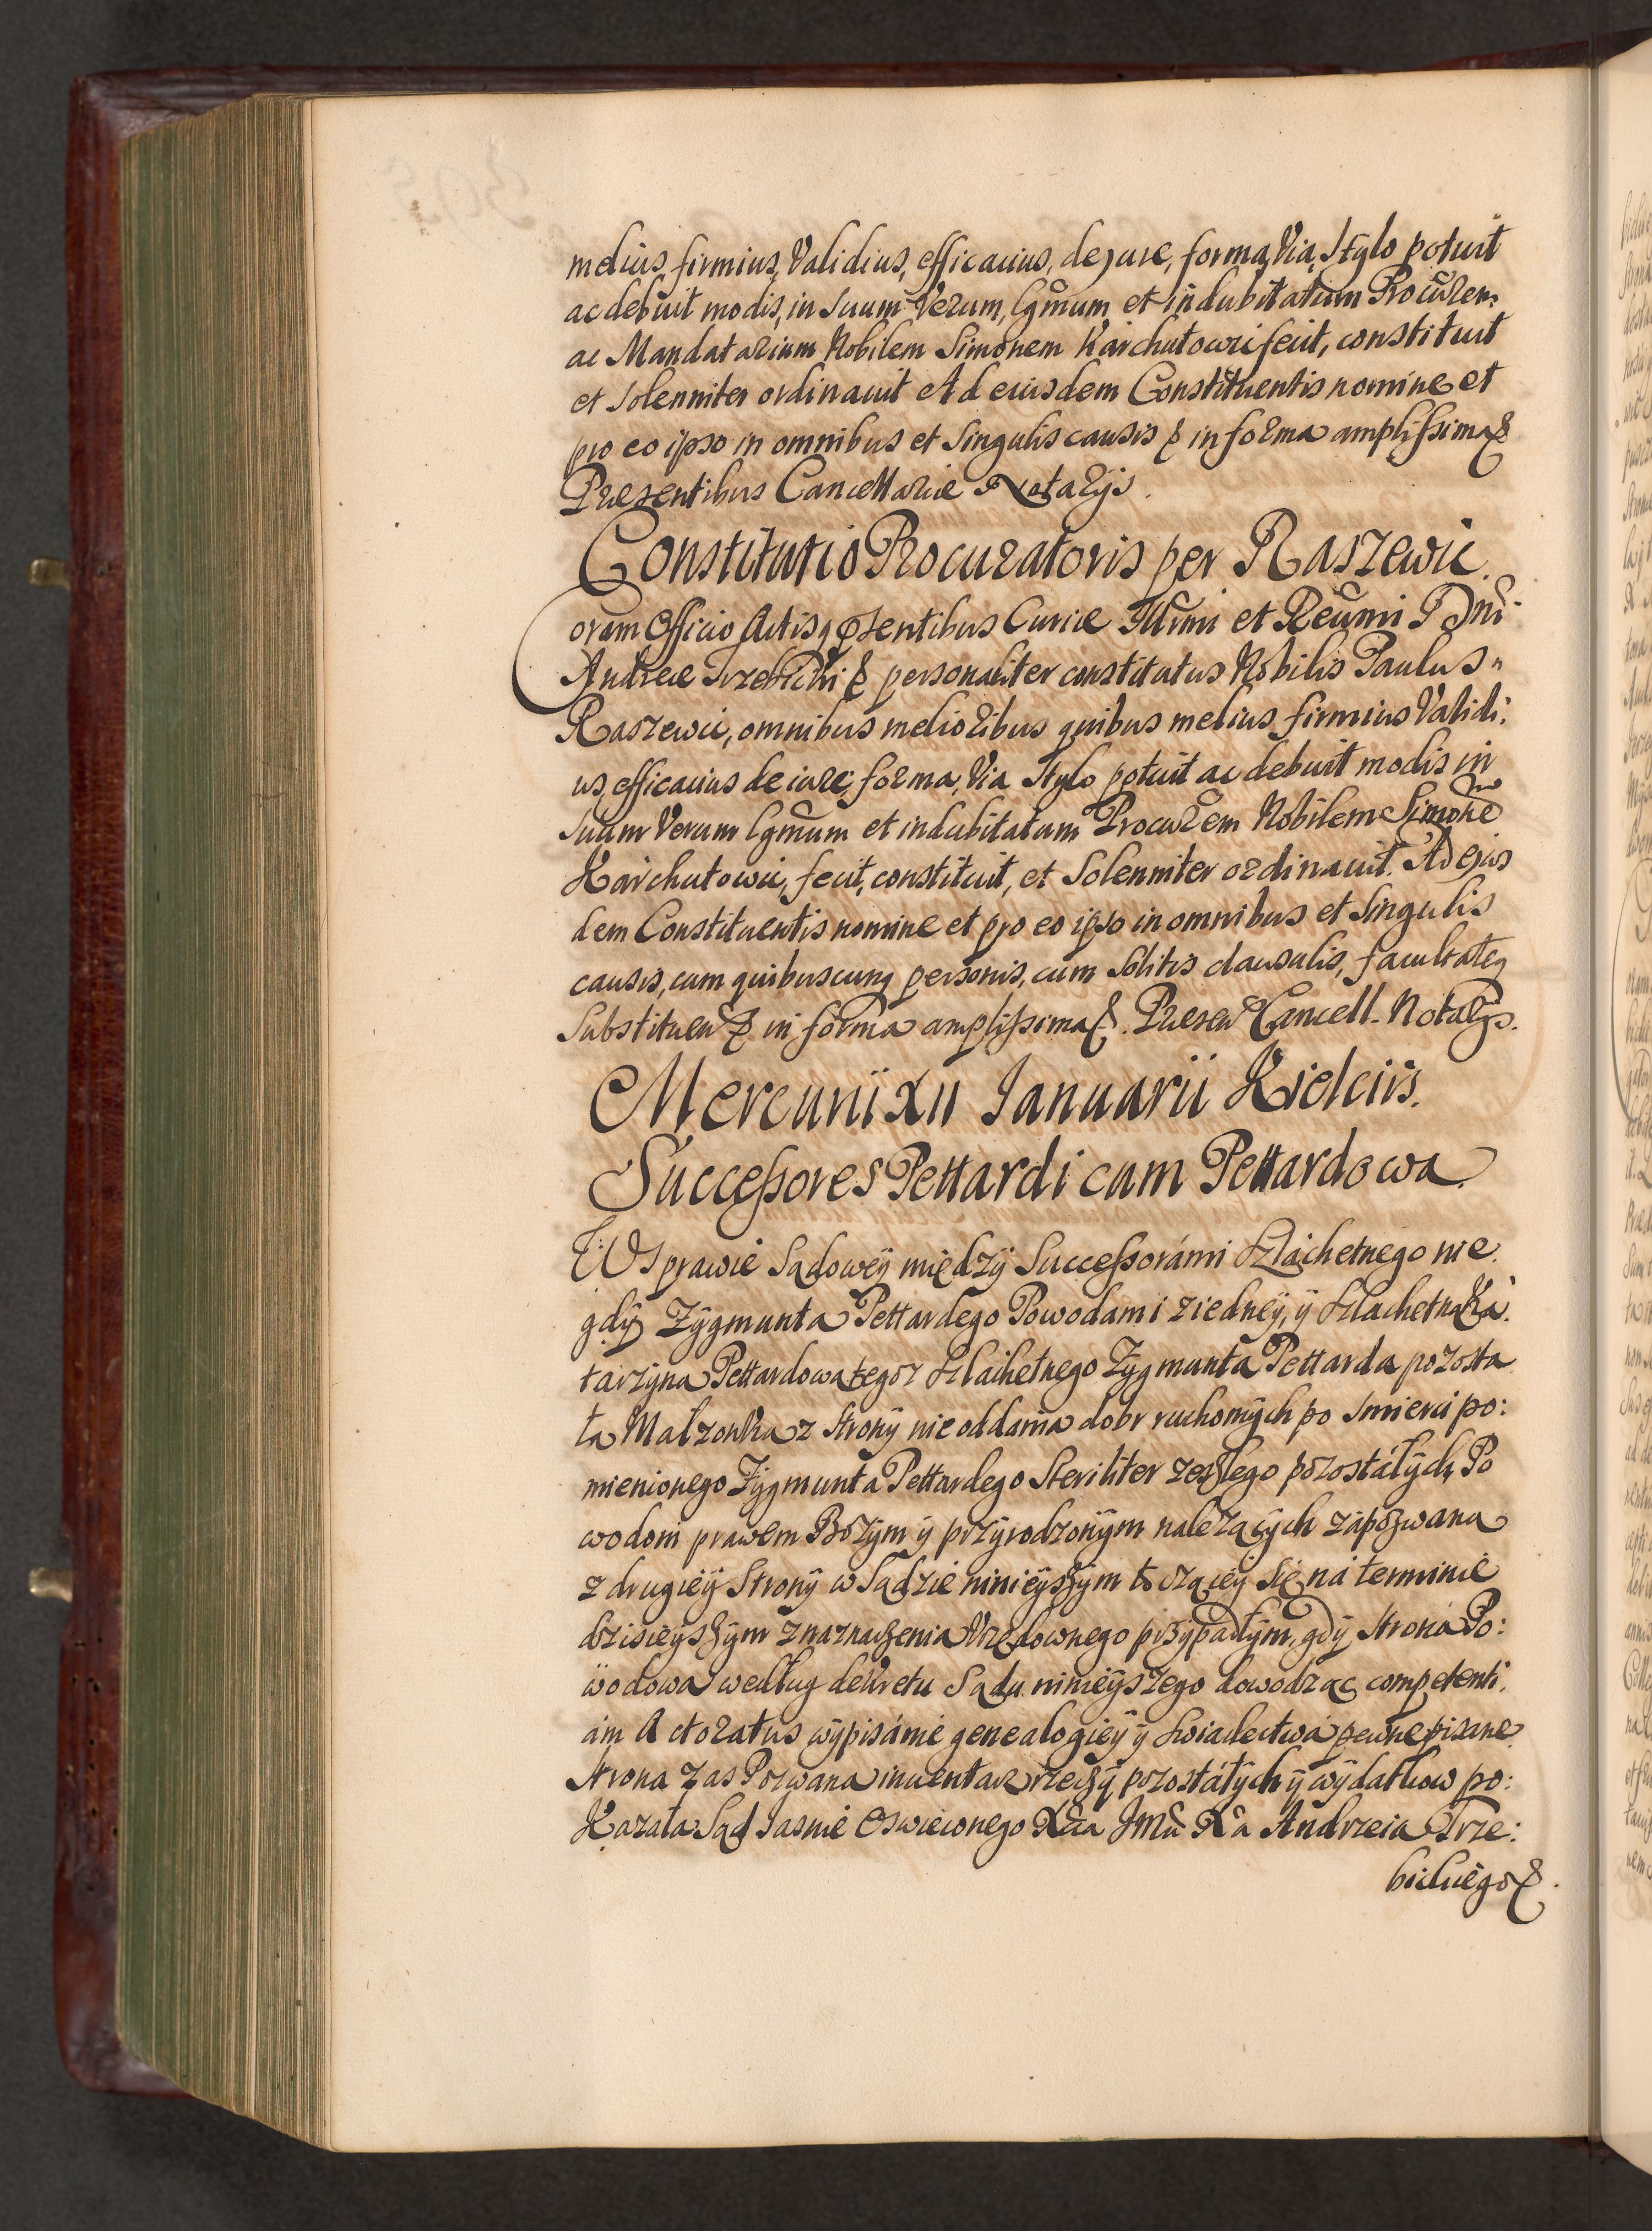 melius, firmius, Validius, efficacius, de jure, forma, Via, Stylo potuit
ac debuit modis, in suum Verum, lgmum et indubitatum Procurem
ac Mandatarium Nobilem Simonem Karchutowic fecit, constituit
et solenniter ordinavit Ad eiusdem Constituentis nomine et
pro eo ipso in omnibus et singulis causis & in forma amplissima &
Præsentibus Cancellariæ Notarijs.
Constitutio Procuratoris per Raszewic.
Coram Officio Actisq præsentibus Curiæ Illrmi et Reumi D Dni
Andreæ Trzebicki & personaliter constitutus Nobilis Paulus
Raszewic, omnibus melioribus quibus melius firmius Validi:
us, efficacius de iure, forma, Via Stylo potuit ac debuit modis in
suum Verum lgmum et indubitatum Procurem Nobilem Simone
Karchutowic, fecit, constituit, et Solenniter ordinavit. Ad ejus
dem Constituentis nomine et pro eo ipso in omnibus et singulis
causis, cum quibuscunq personis, cum solitis clausulis, facultateq
Substituen & in forma amplissima &. Præsen Cancell. Notarijs.
Mercurii XII Ianuarii Kielciis.
Successores Pettardi cum Pettardowa.
W Sprawie Sądowey między Successorámi Szláchetnego nie
gdy Zygmunta Pettardego Powodami z iedney, y Szlachetną Ká
tarzyną Pettardowa tegoz Szlachetnego Zygmunta Pettarda pozosta
ła Małzonka z Strony nie oddania dobr ruchomych po Smierci po:
mienionego Zygmunta Pettardego Steriliter zeszłego pozostáłych, Po
wodom prawem Bozym y przyrodzonym nalezących zapozwana
z drugiey Strony w Sądzie ninieyszym toczącey się ná terminie
dzisieyszym z naznaczenia Vrzędownego przypadłym, gdy Strona Po:
wodowa według dekretu Sądu ninieyszego dowodząc competenti
am Actoratus wypisánie genealogiey y swiadectwa pewne pisane
Strona zas Pozwana inwentarz rzeczy pozostáłych y wydatkow po:
Kazała Sąd Iasnie Oswieconego Xcia Jmci Xa Andrzeia Trze:
bickiego &.